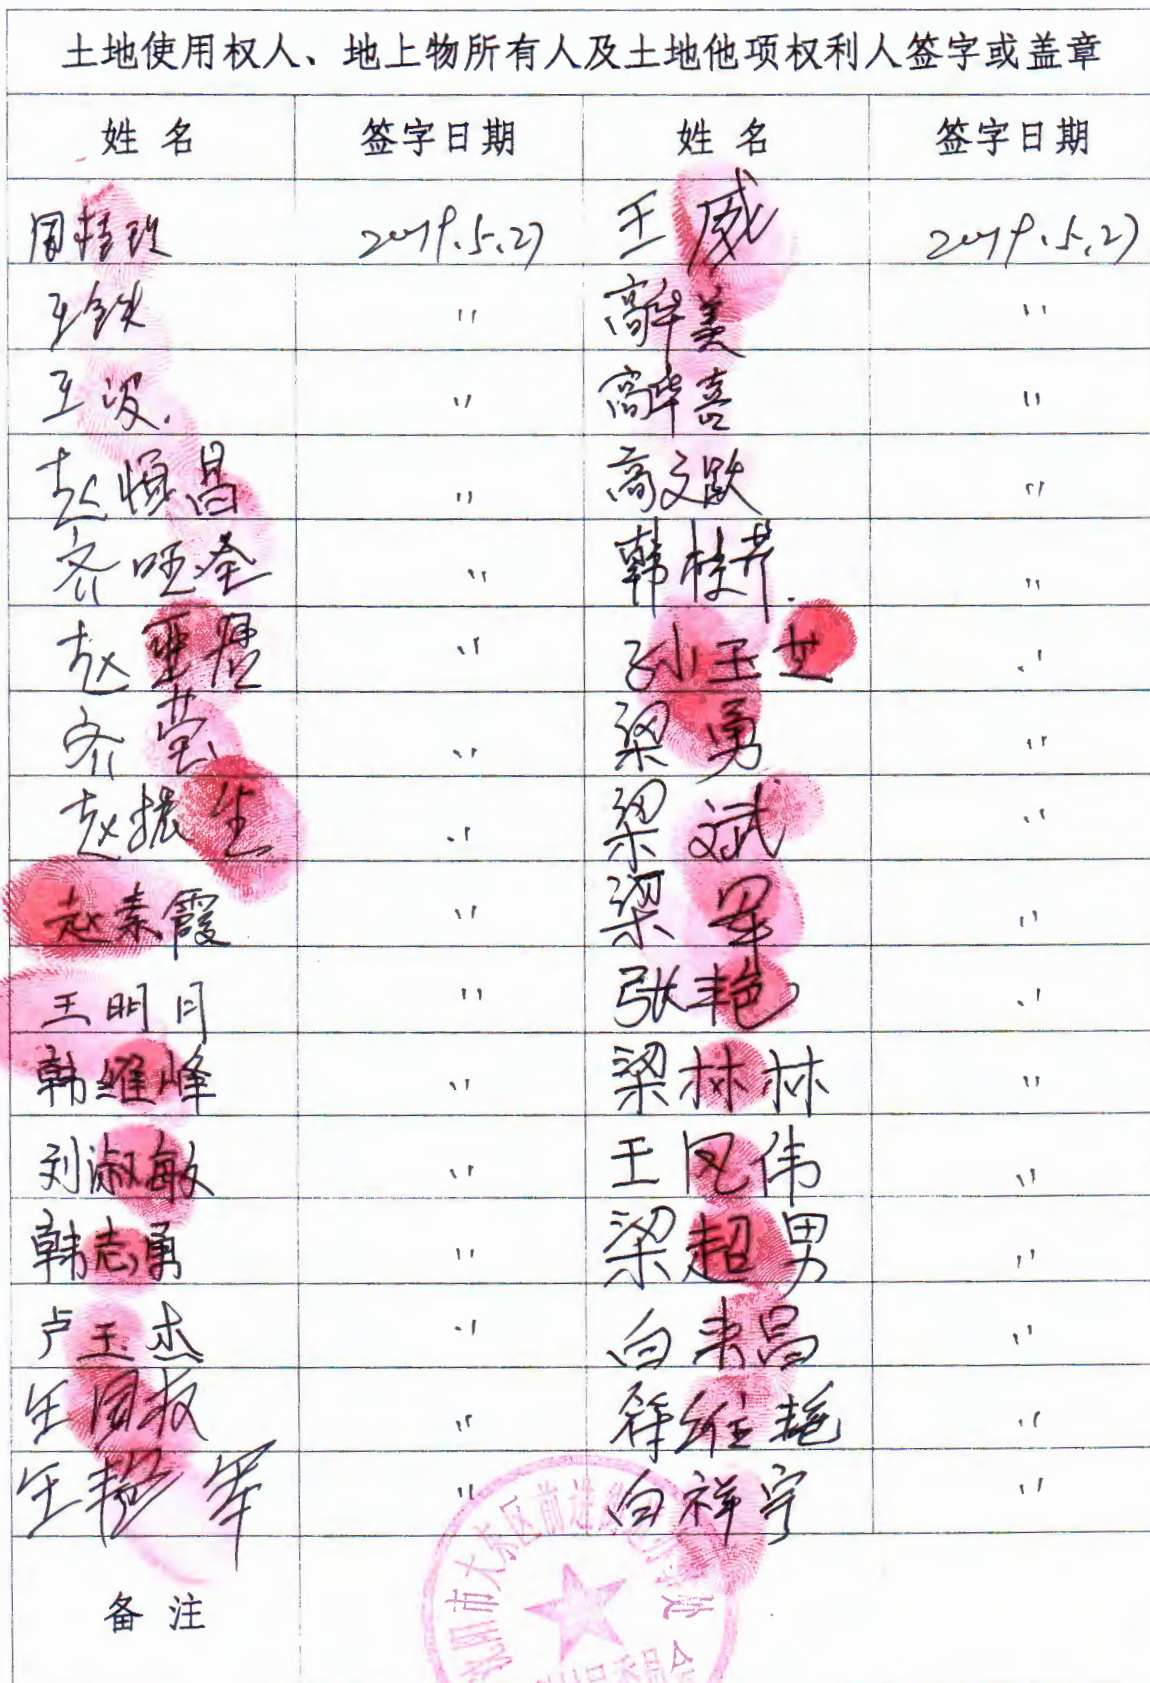 土地使用权人、地上物所有人及土地他项权利人签字或盖章
姓名 签字日期 姓名 签字日期
周桂玖 2019.5.27 王威 2019.5.27
王铁 〃 高华美 〃
王波. 〃 高华喜 〃
赵恒昌 〃 高文跃 〃
齐 〃 韩桂芹. 〃
赵 〃 孙玉芝 〃
齐莹 〃 梁勇 〃
赵振生 〃 梁斌 〃
赵素霞 〃 梁军 〃
王明月 〃 张艳 〃
韩维峰 〃 梁林林 〃
刘淑敏 〃 王凤伟 〃
韩志勇 〃 梁超男 〃
卢玉杰 〃 白来昌 〃
王国权 〃 〃
王艳军 〃 白祥宇 〃
备注
沈阳市大东区前进街道办事处